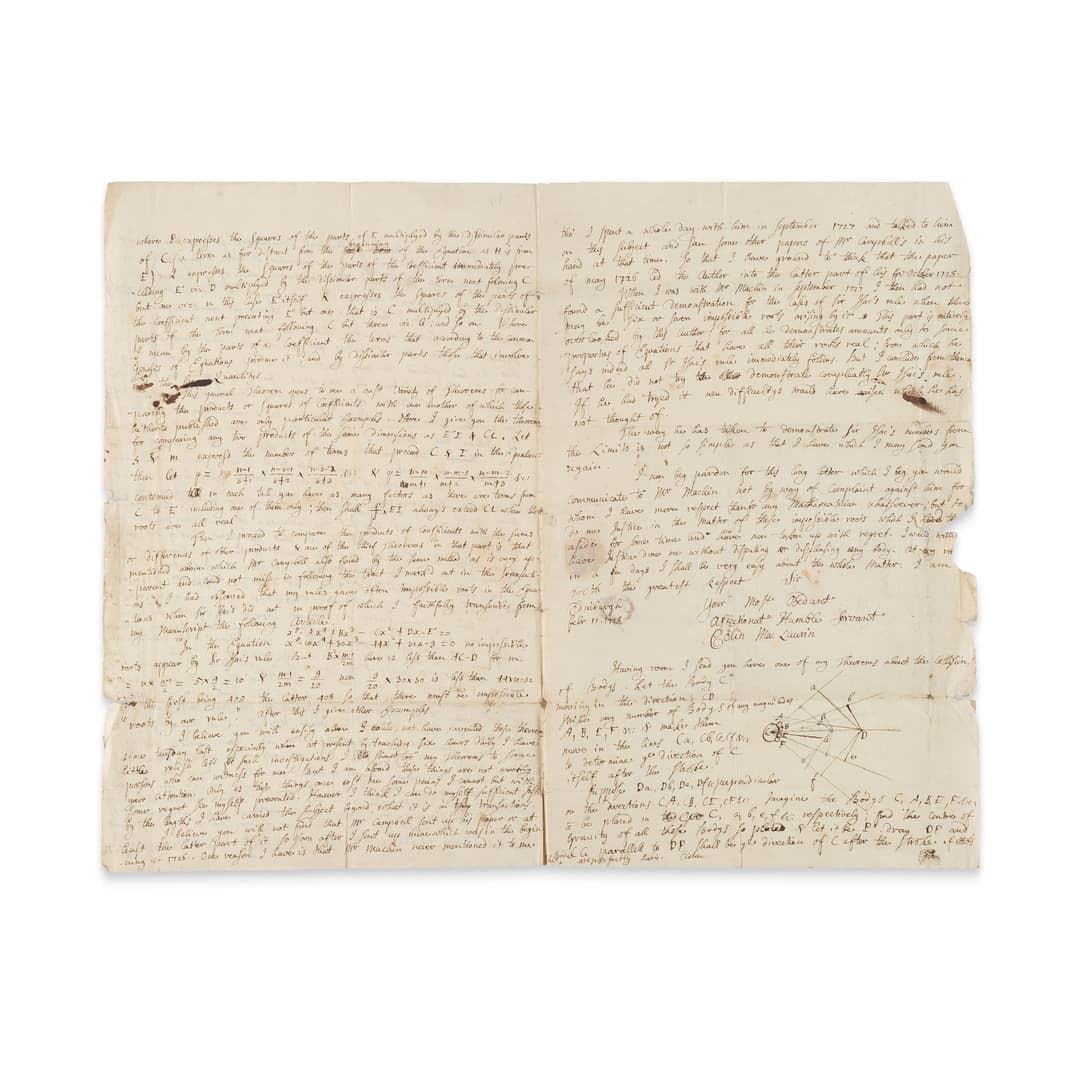 where B expresses the squares of the parts of E multiplyed by the dissimilar parts
of C, (a term as far distant from the beginning of the Equation as H is from
E) & expresses the Squares of the parts of the coefficient immediately pre
-ceeding E viz. D multiplyed by the dissimilar parts of the term next following C
but one viz. in this case E itself, K expresses the squares of the parts of
the coefficient next preceeding E but one that is C multiplyed by the dissimilar
parts of the term next following C but three viz and so on. Where
is mean by the parts of a Coefficient the terms that according to the common
Geneses of Equations produce it and by dissimilar parts those that involve
Quantitys
This general Theorem gives to me a vast Variety of Theorems for com
paring the products or squares of Coefficients with one another of which those
hitherto published are only particular Examples. Here I give you the theorem
for comparing any two products of the same dimensions as EI & CL. Let
S & m express the number of terms that preceed C & I in the Equation
then let
continued in each till you have as many factors as there are terms from
C to E including one of them only; then shall EI always exceed CL when the
roots are all real
Then I proceed to compare the products of Coefficients with the sums
or differences of other products & one of the chief Theorems in that part is that
mentioned above which Mr Campbell also found by the same method as is very ap
-parent and could not miss in following the tract I marked out in the transacti
-ons. I had observed that my rules gave often impossible roots in the Equa
-tions when Sir Isac's did not in proof of which I faithfully transcribe from
my Manuscript the following Article
In the Equation no impossible
roots appear by Sir Isac's rule But B x here is less than AC-D for
= 5 x = 10 & = now x 30x30 is less than
the first being 405 the latter 408 so that there must be impossible
roots by our rule. After this I give other Examples
I believe you will easily allow I could not have invented these theorems
since tuesday last especially when at present by teaching six hours daily I have
little relish left for such investigations. I shewed for my Theorems to some
persons who can witness for me. But I am afraid these things are not worthy
your attention. Only as these things once cost me some pains I cannot but with
some regret see myself prevented. However I think I can do myself sufficient justice
by the lengths I have carried the subject beyond what it is in the transactions.
I believe you will not find that Mr Campbell sent up his paper or at
least the latter part of it so soon after I sent up mine which was in the begin
-ning of 1726. One reason I have is that Mr Machin never mentioned it to me
tho' I spent a whole day with him in September 1727 and talked to him
on this subject and saw some other papers of Mr Campbell's in his
hand at that time. So that I have ground to think that the paper
of may 1726 led the Author into the latter part of his for October 1728
When I was with Mr Machin in September 1727 I then had not
found a sufficient Demonstration for the cases of Sir Isac's rule when there
may be six or seven impossible roots arising by it. This part is entirely
overlooked by this Author; for all he demonstrates amounts only to some
propertys of Equations that have all their roots real; from which he
says indeed all Sr Isac's rule immediately follows. But I conclude from thence
that he did not try to demonstrate compleatly Sir Isac's rule.
If he had tryed it new difficultys would have arisen which he has
not thought of.
The way he has taken to demonstrate Sir Isac's numbers from
the Limits is not so simple as that I have, which I may send you
again.
I now beg pardon for this long letter which I beg you would
communicate to Mr Machin not by way of Complaint against him for
whom I have more respect than for any Mathematician whatsoever; but to
do me Justice in the Matter of these impossible roots which I had
aside for some time and have now taken up with regret. I would
have Justice done me without disputing or displeasing any body. At any
in a few days I shall be very easy about the whole Matter. I am
with the greatest Respect Sir
Your Most Obedient
Affectionate Humble Servant
Colin Mac Laurin
Edinburgh
Febr 11. 1728
Having room I send you here one of my Theorems about the Collision
of Bodys. Let the Body C
moving in the direction CD
strike any number of Bodys of any magnitude
A, B, E, F &c & make them
move in the lines Ca, Cb, Ce, Cf &c.
to determine ye direction of C
itself after the stroke.
Suppose Da, Db, De, Df &c perpendicular
on the directions CA, CB, CE, CF &c. Imagine the Bodys C, A, B, E, F &c.
to be placed in C, a, b, e, f &c. respectively; find the Centre of
Gravity of all these Bodys so placed & let it be P draw DP and
C parallel to DP shall be ye direction of C after the stroke, if
are perfectly hard. Colin